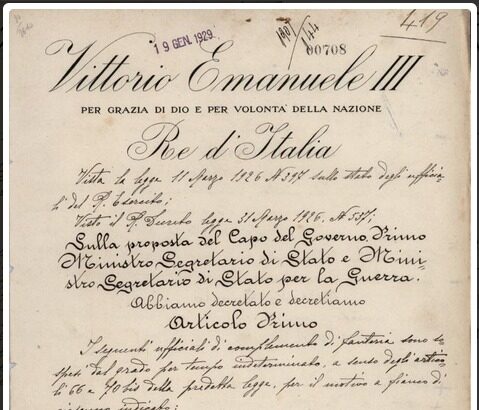 419
19 GEN. 1929
00708
Vittorio Emanuele III
PER GRAZIA DI DIO E PER VOLONTA' DELLA NAZIONE
Re d'Italia
Vista la legge 11 Marzo 1926 N 397 sullo stato degli ufficia-
li del R. Esercito;
Visto il R. Decreto legge 31 Marzo 1926, N. 537;
Sulla proposta del Capo del Governo, Primo
Ministro Segretario di Stato e Mini-
stro Segretario di Stato per la Guerra.
Abbiamo decretato e decretiamo
Articolo Primo
I seguenti ufficiali di complemento di fanteria sono so-
spesi dal grado per tempo indeterminato, a senso degli artico-
li 66 e 70 bis della predetta legge, per il motivo a fianco di
ciascuno indicato: